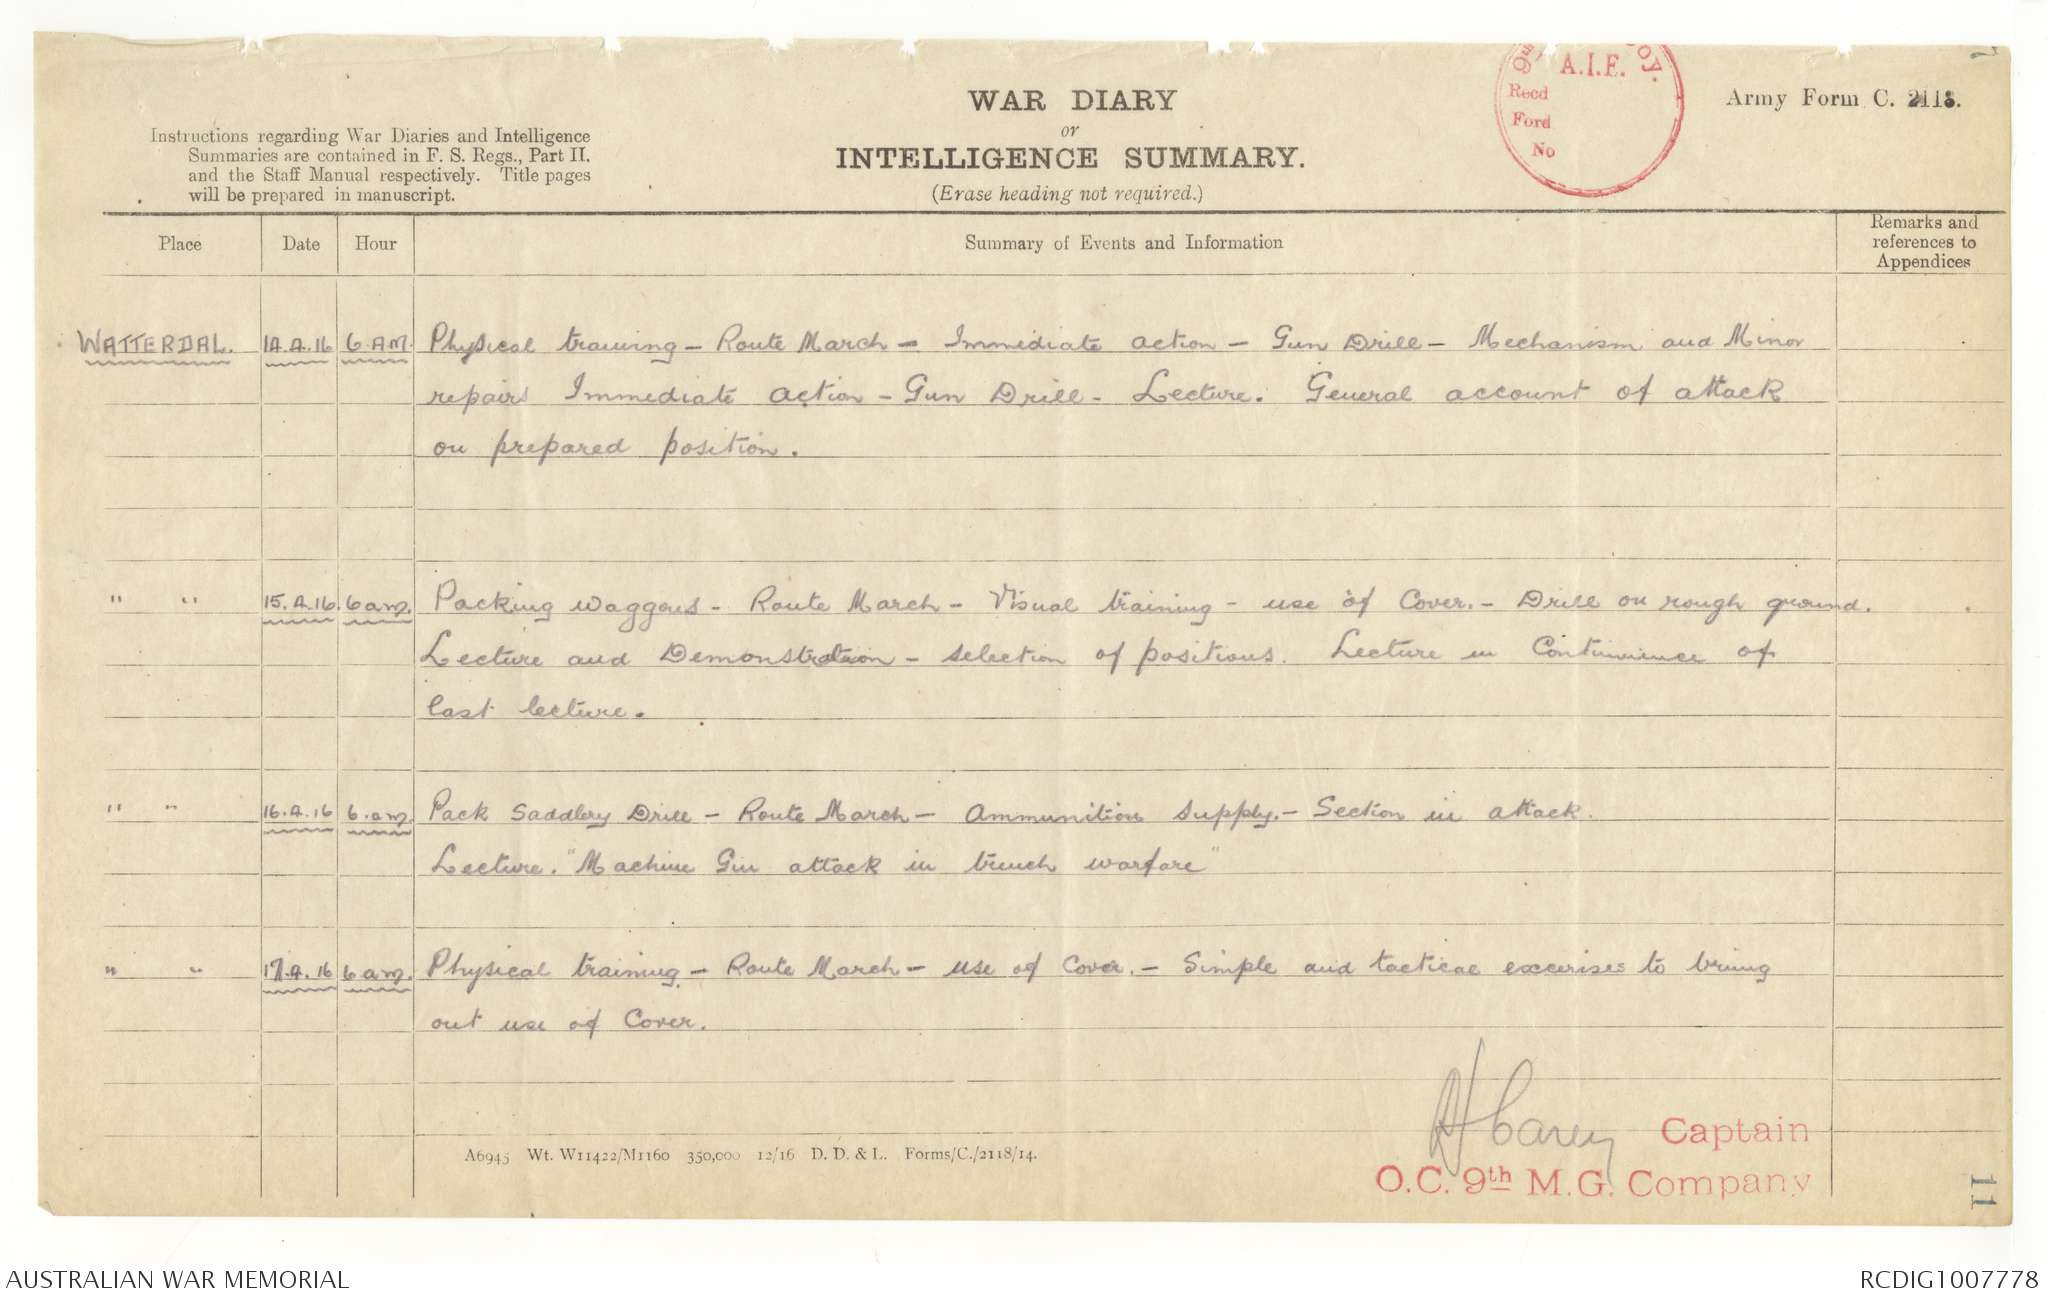 9th
Coy.
A.I.F.
Recd
Ford
No
WAR DIARY
or
INTELLIGENCE SUMMARY.
(Erase heading not required.)
Army Form C. 2118.
Instructions regarding War Diaries and Intelligence
Summaries are contained in F. S. Regs., Part II.
and the Staff Manual respectively. Title pages
will be prepared in manuscript.
Place Date Hour Summary of Events and Information Remarks and
references to
Appendices
WATTERDAL. 14.4.16 6 AM. Physical training - Route March - Immediate action - Gun Drill - Mechanism and Minor
repairs Immediate action - Gun Drill - Lecture. General account of attack
on prepared position.
" " 15.4.16. 6 am. Packing waggons - Route March - Visual training - use of Cover. - Drill on rough ground.
Lecture and Demonstration - selection of positions. Lecture in Continuence of
last lecture.
" " 16.4.16 6.am. Pack Saddlery Drill - Route March - Ammunition supply. - Section in attack.
Lecture. "Machine Gun attack in trench warfare"
" " 17.4.16 6 am. Physical training - Route March - use of Cover. - Simple and tactical excerises to bring
out use of Cover.
Carey Captain
O.C. 9th M.G. Company
A6945 Wt. W11422/M1160 350,000 12/16 D. D. & L. Forms/C./2118/14.
11
AUSTRALIAN WAR MEMORIAL RCDIG1007778